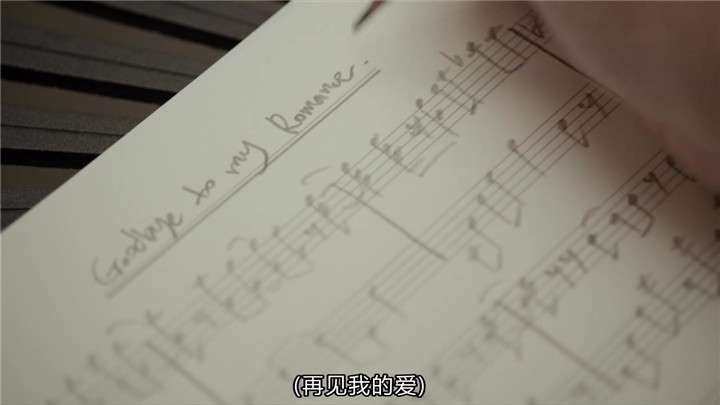 Goodbye to my Romance.
(再见我的爱)